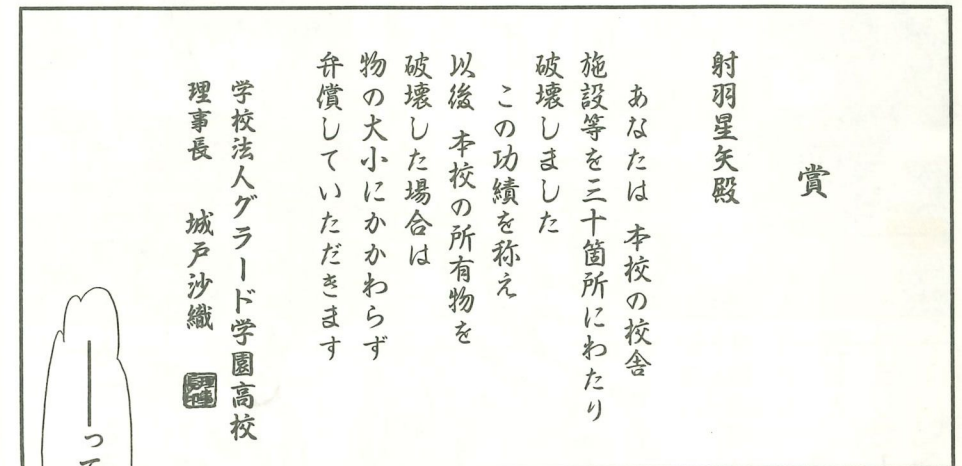 賞
射羽星矢殿
あなたは 本校の校舎
施設等を三十箇所にわたり
破壊しました
この功績を称え
以後 本校の所有物を
破壊した場合は
物の大小にかかわらず
弁償していただきます
学校法人グラード学園高校
理事長 城戸沙織
――って